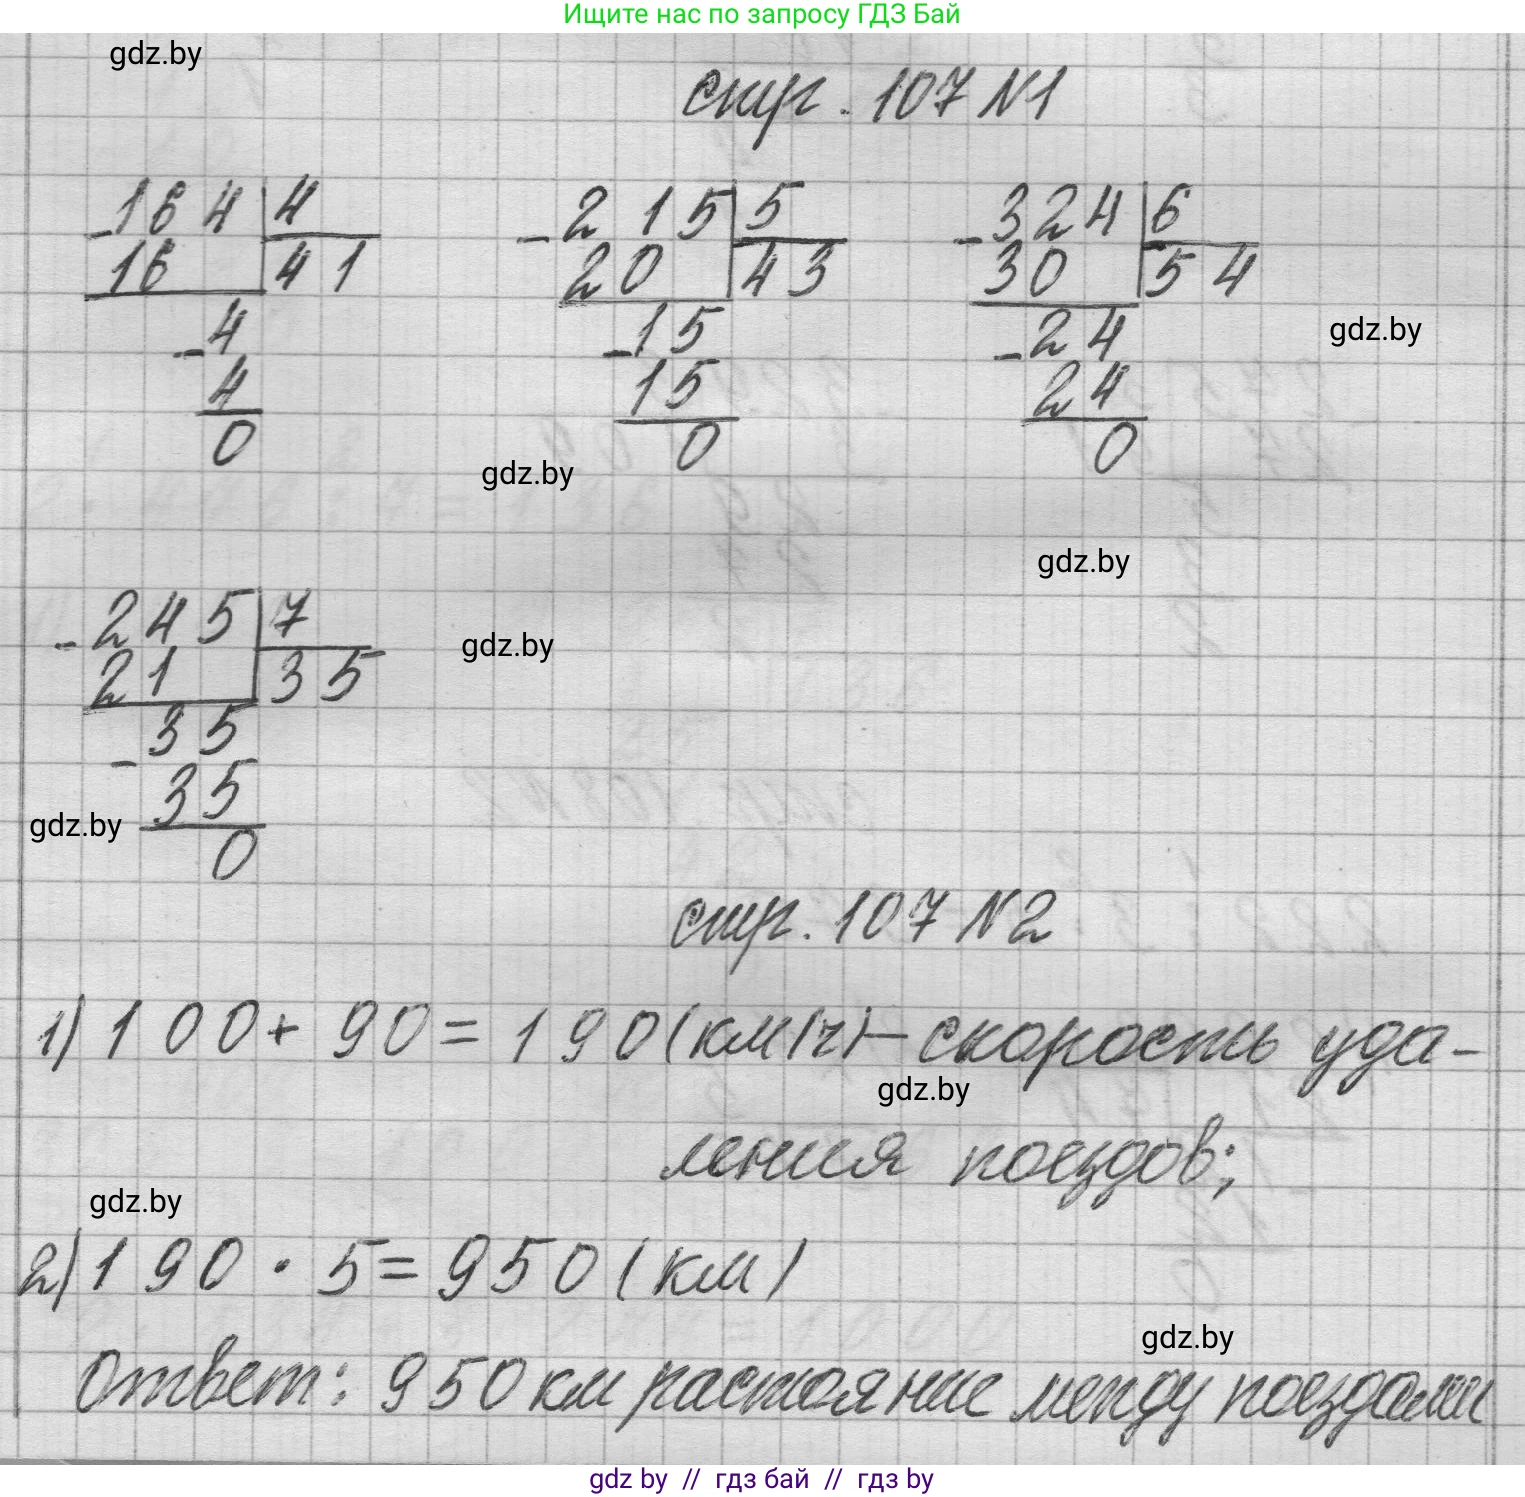 Ищите нас по запросу ГДЗ Бай
gdz.by
стр. 107 N1
-164 4
16 41
-4
4
0
-215 5
20 43
-15
15
0
-324 6
30 54
-24
24
0
gdz.by
gdz.by
gdz.by
-245 7
21 35
-35
35
0
gdz.by
gdz.by
стр. 107 N2
1) 100 + 90 = 190 (км/ч) – скорость уда-
gdz.by
ления поездов;
gdz.by
2) 190 · 5 = 950 (км)
gdz.by
Ответ: 950 км растояние между поездами
gdz by // гдз бай // гдз by